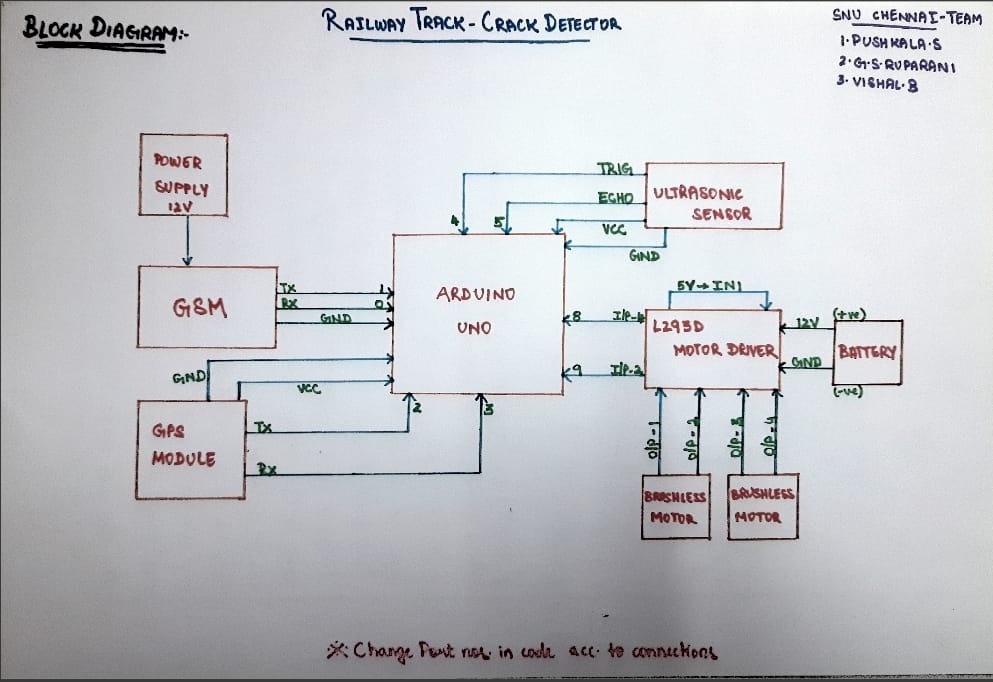 BLOCK DIAGRAM:-
RAILWAY TRACK - CRACK DETECTOR
SNU CHENNAI-TEAM
1. PUSHKALA.S
2. G.S.RUPARANI
3. VISHAL.B
POWER
SUPPLY
12V
GSM
Tx
1
Rx
0
GND
GND
VCC
GPS
MODULE
Tx
2
Rx
3
ARDUINO
UNO
4
5
TRIG
ECHO
VCC
GND
ULTRASONIC
SENSOR
5V→IN1
8
I/P-1
9
I/P-2
L293D
MOTOR DRIVER
12V
(+ve)
GND
(-ve)
BATTERY
O/P-1
O/P-2
O/P-3
O/P-4
BRUSHLESS
MOTOR
BRUSHLESS
MOTOR
※ Change Port nos. in code acc. to connections